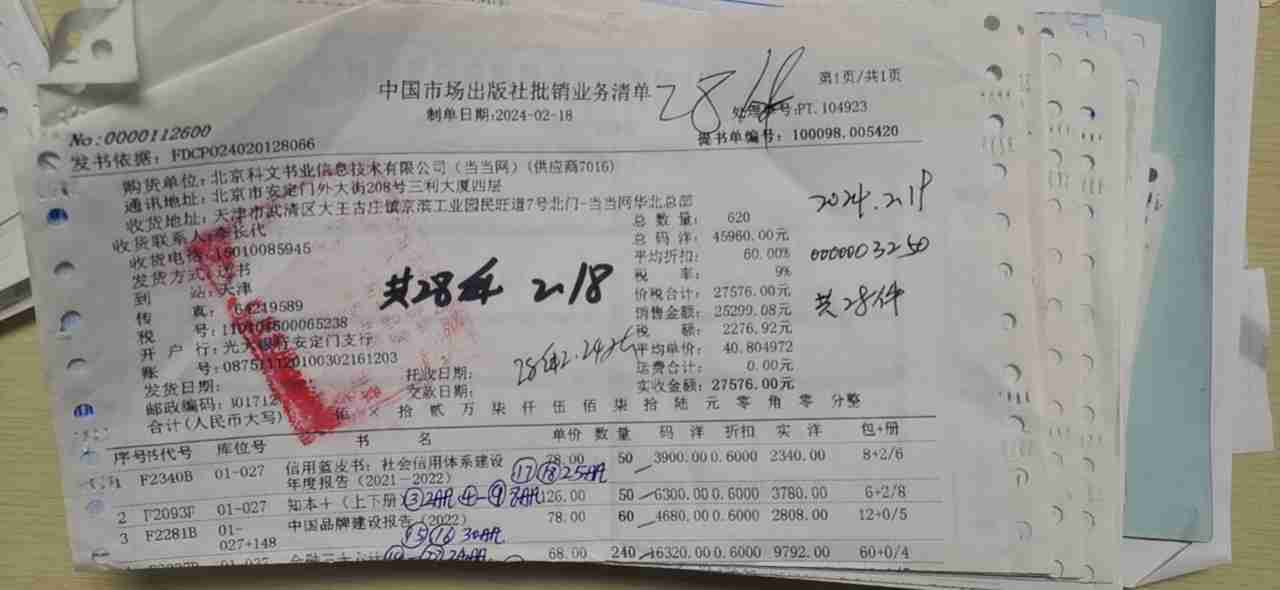 中国市场出版社批销业务清单
28件
第1页/共1页
制单日期:2024-02-18
号:PT.104923
No:0000112600
提书单编号: 100098.005420
发书依据: FDCPO24020128066
购货单位: 北京科文书业信息技术有限公司(当当网)(供应商7016)
通讯地址: 北京市安定门外大街208号三利大厦四层
收货地址: 天津市武清区大王古庄镇京滨工业园民旺道7号北门-当当网华北总部
收货联系人:李长代
收货电话:15010085945
发货方式:送书
到 站:天津
传 真: 64219589
税 号:110101600065238
开 户 行:光大银行安定门支行
账 号:087511120100302161203
发货日期:
邮政编码:301712
托收日期:
交款日期:
总 数 量: 620
总 码 洋: 45960.00元
平均折扣: 60.00%
税 率: 9%
价税合计: 27576.00元
销售金额: 25299.08元
税 额: 2276.92元
平均单价: 40.804972
运费合计: 0.00元
实收金额: 27576.00元
2024.2.19
0000003250
共28件
共28件 2.18
合计(人民币大写) 佰 × 拾 贰 万 柒 仟 伍 佰 柒 拾 陆 元 零 角 零 分整
序号 书代号 库位号 书 名 单价 数量 码 洋 折扣 实 洋 包+册
F2340B 01-027 信用蓝皮书: 社会信用体系建设年度报告(2021-2022) 78.00 50 3900.00 0.6000 2340.00 8+2/6
⑰⑱25AA
2 F2093F 01-027 知本+(上下册) 126.00 50 6300.00 0.6000 3780.00 6+2/8
3 F2281B 01-027+148 中国品牌建设报告(2022) 78.00 60 4680.00 0.6000 2808.00 12+0/5
⑮⑯30AA
68.00 240 16320.00 0.6000 9792.00 60+0/4